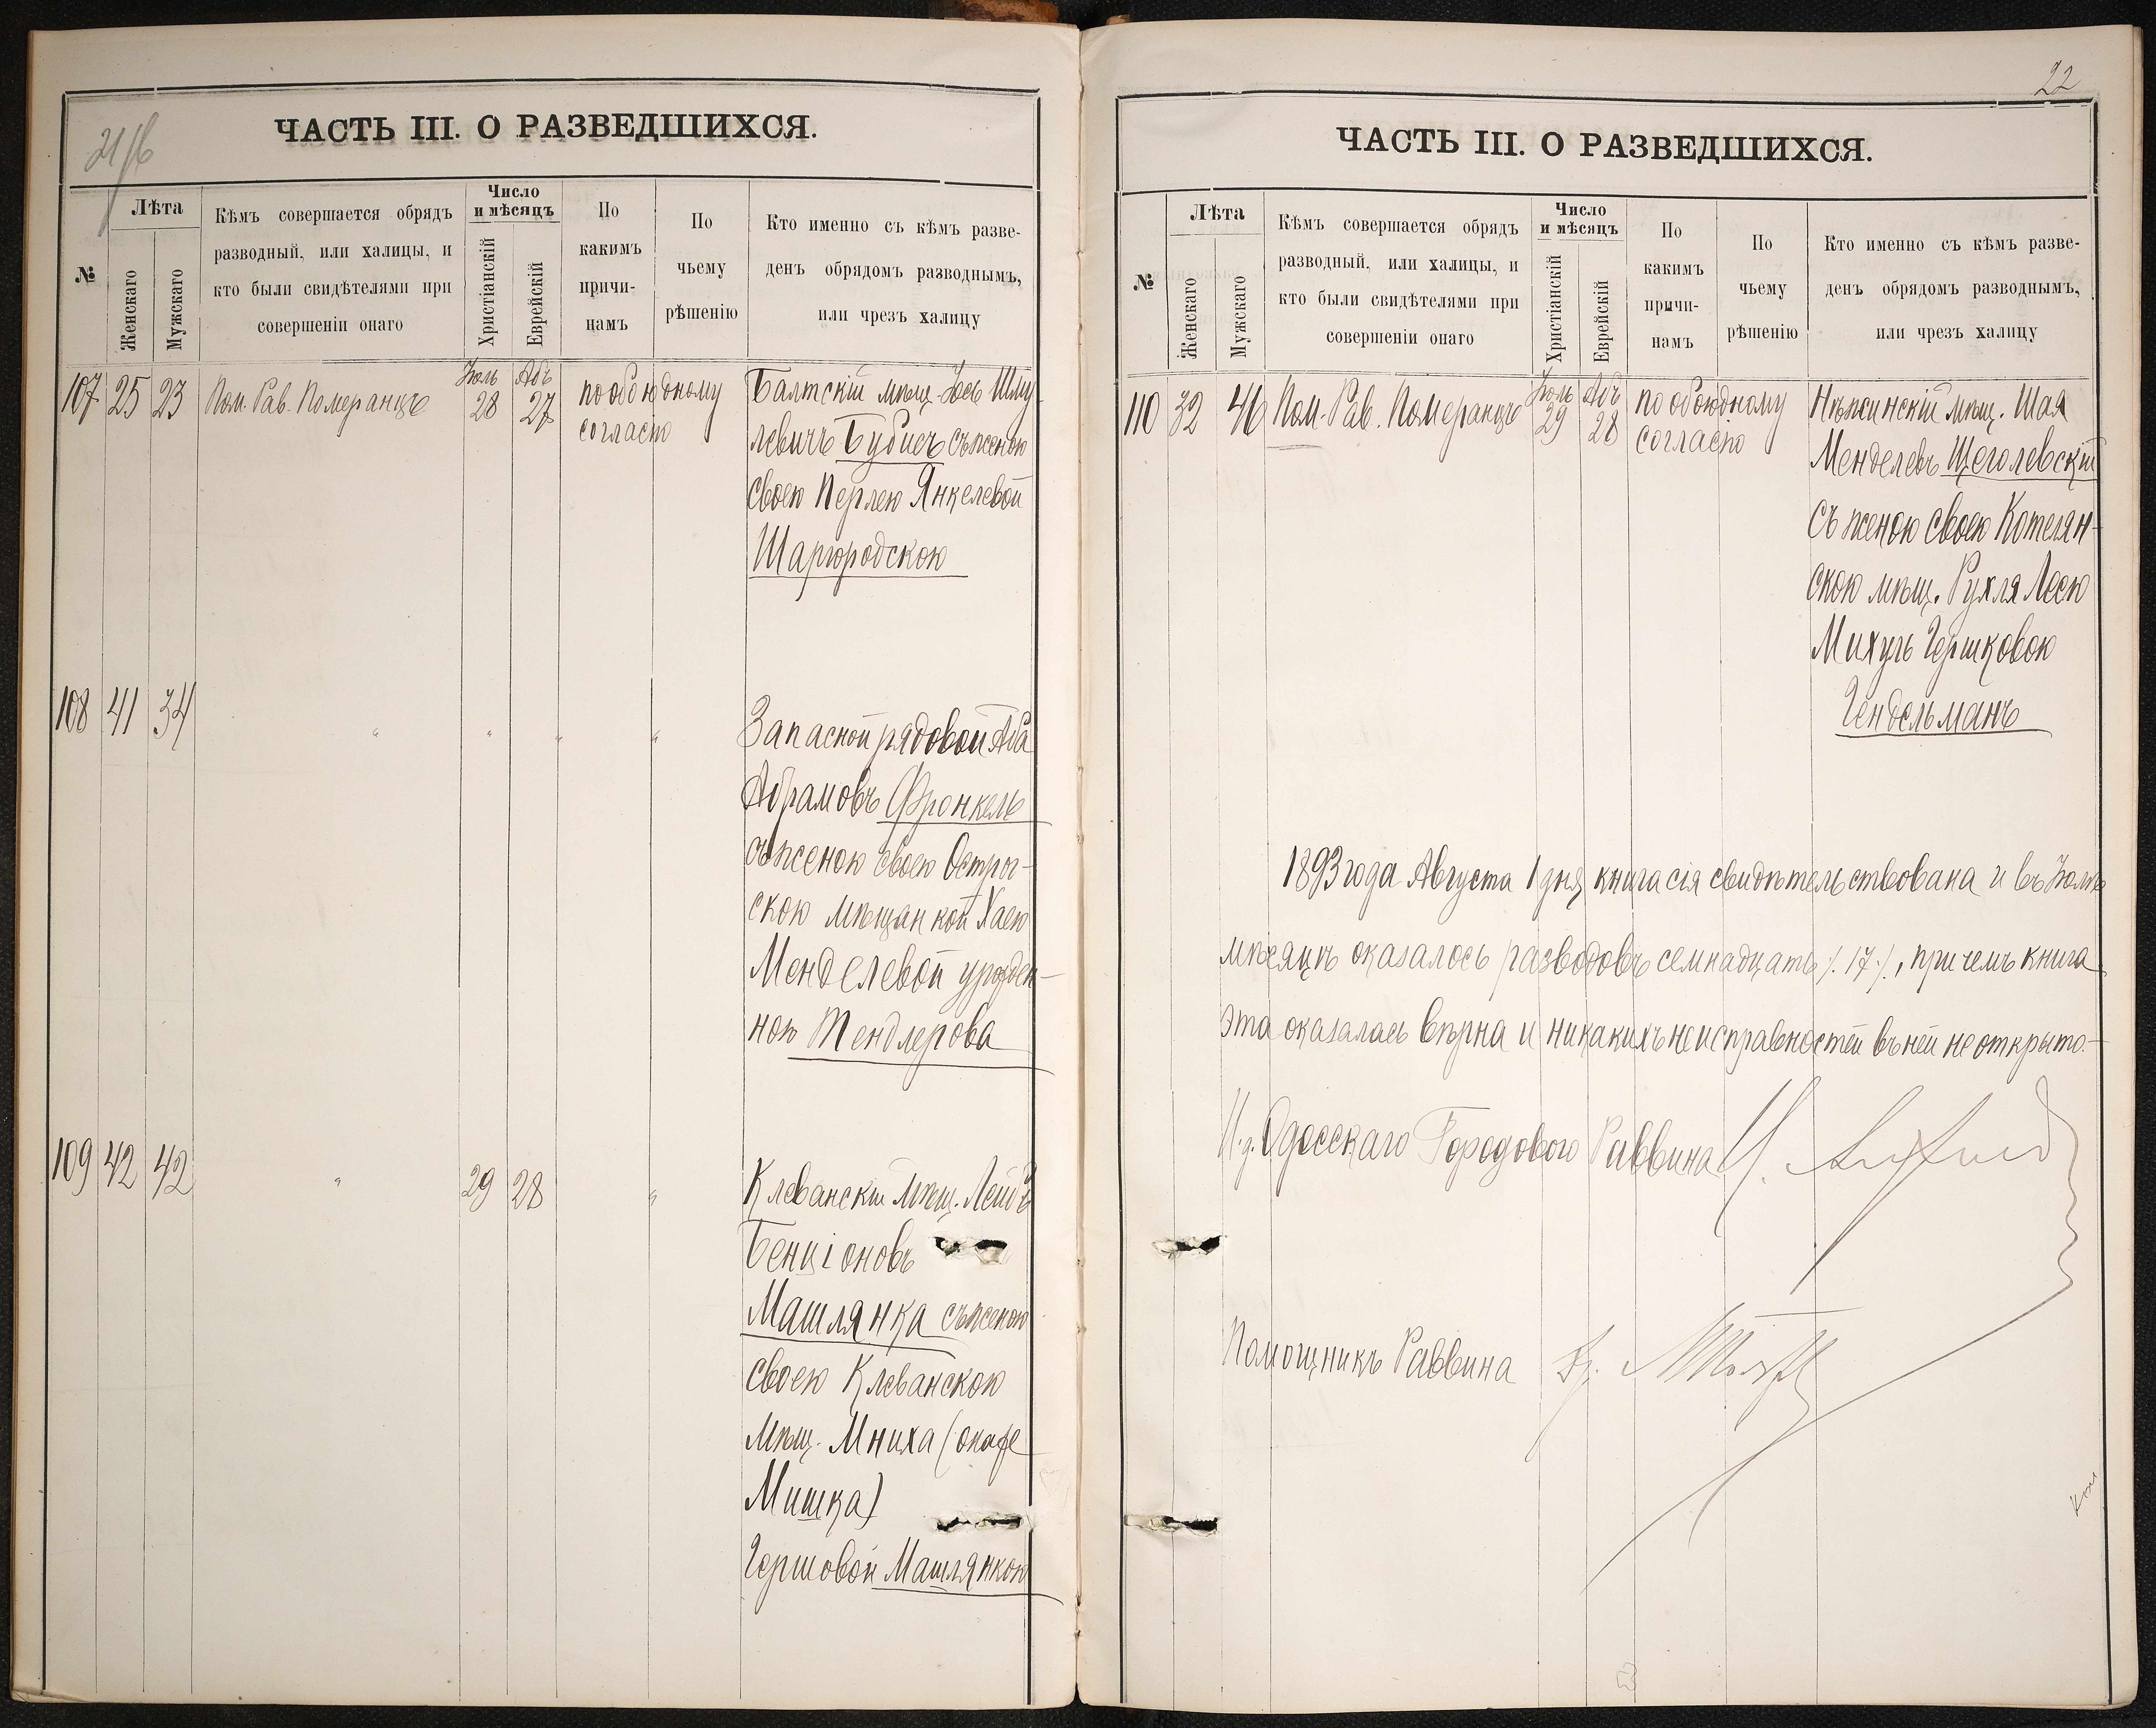 21/б
ЧАСТЬ III. О РАЗВЕДШИХСЯ.
№
Лѣта
Женскаго
Мужскаго
Кѣмъ совершается обрядъ
разводный, или халицы, и
кто были свидѣтелями при
совершеніи онаго
Число
и мѣсяцъ
Христіанскій
Еврейскій
По
какимъ
причи-
намъ
По
чьему
рѣшенію
Кто именно съ кѣмъ разве-
денъ обрядомъ разводнымъ,
или чрезъ халицу
107 25 23 Пом. Рав. Померанцъ Іюль 28 Абъ 27 по обоюдному
согласію
Балтскій мѣщ. Іось Шму-
левичъ Бубисъ съ женою
своею Перлею Янкелевой
Шаргородскою
108 41 34 " " " "
Запасной рядовой Аба
Абрамовъ Фронкель
съ женою своею Остро-
скою мѣщанкой Хаею
Менделевой урожден-
ною Тендлерова
109 42 42 " 29 28 "
Клеванскій мѣщ. Лейбъ
Бенціоновъ
Машлянка съ женою
своею Клеванскою
мѣщ. Мниха (она же
Мишка)
Гершовой Машлянкою
22
ЧАСТЬ III. О РАЗВЕДШИХСЯ.
№
Лѣта
Женскаго
Мужскаго
Кѣмъ совершается обрядъ
разводный, или халицы, и
кто были свидѣтелями при
совершеніи онаго
Число
и мѣсяцъ
Христіанскій
Еврейскій
По
какимъ
причи-
намъ
По
чьему
рѣшенію
Кто именно съ кѣмъ разве-
денъ обрядомъ разводнымъ,
или чрезъ халицу
110 32 46 Пом. Рав. Померанцъ Іюль 29 Абъ 28 по обоюдному
согласію
Нѣжинскій мѣщ. Шая
Менделевъ Щеголевскій
съ женою своею Котелян-
скою мѣщ. Рухля Леею
Михуль Гершковою
Гендельманъ
1893 года Августа 1 дня книга сія свидѣтельствована и въ Іюлѣ
мѣсяцѣ оказалось разводовъ семнадцать ./. 17 ./., причемъ книга
эта оказалась вѣрна и никакихъ неисправностей въ ней не открыто.–
И. д. Одесскаго Городового Раввина
Помощникъ Раввина